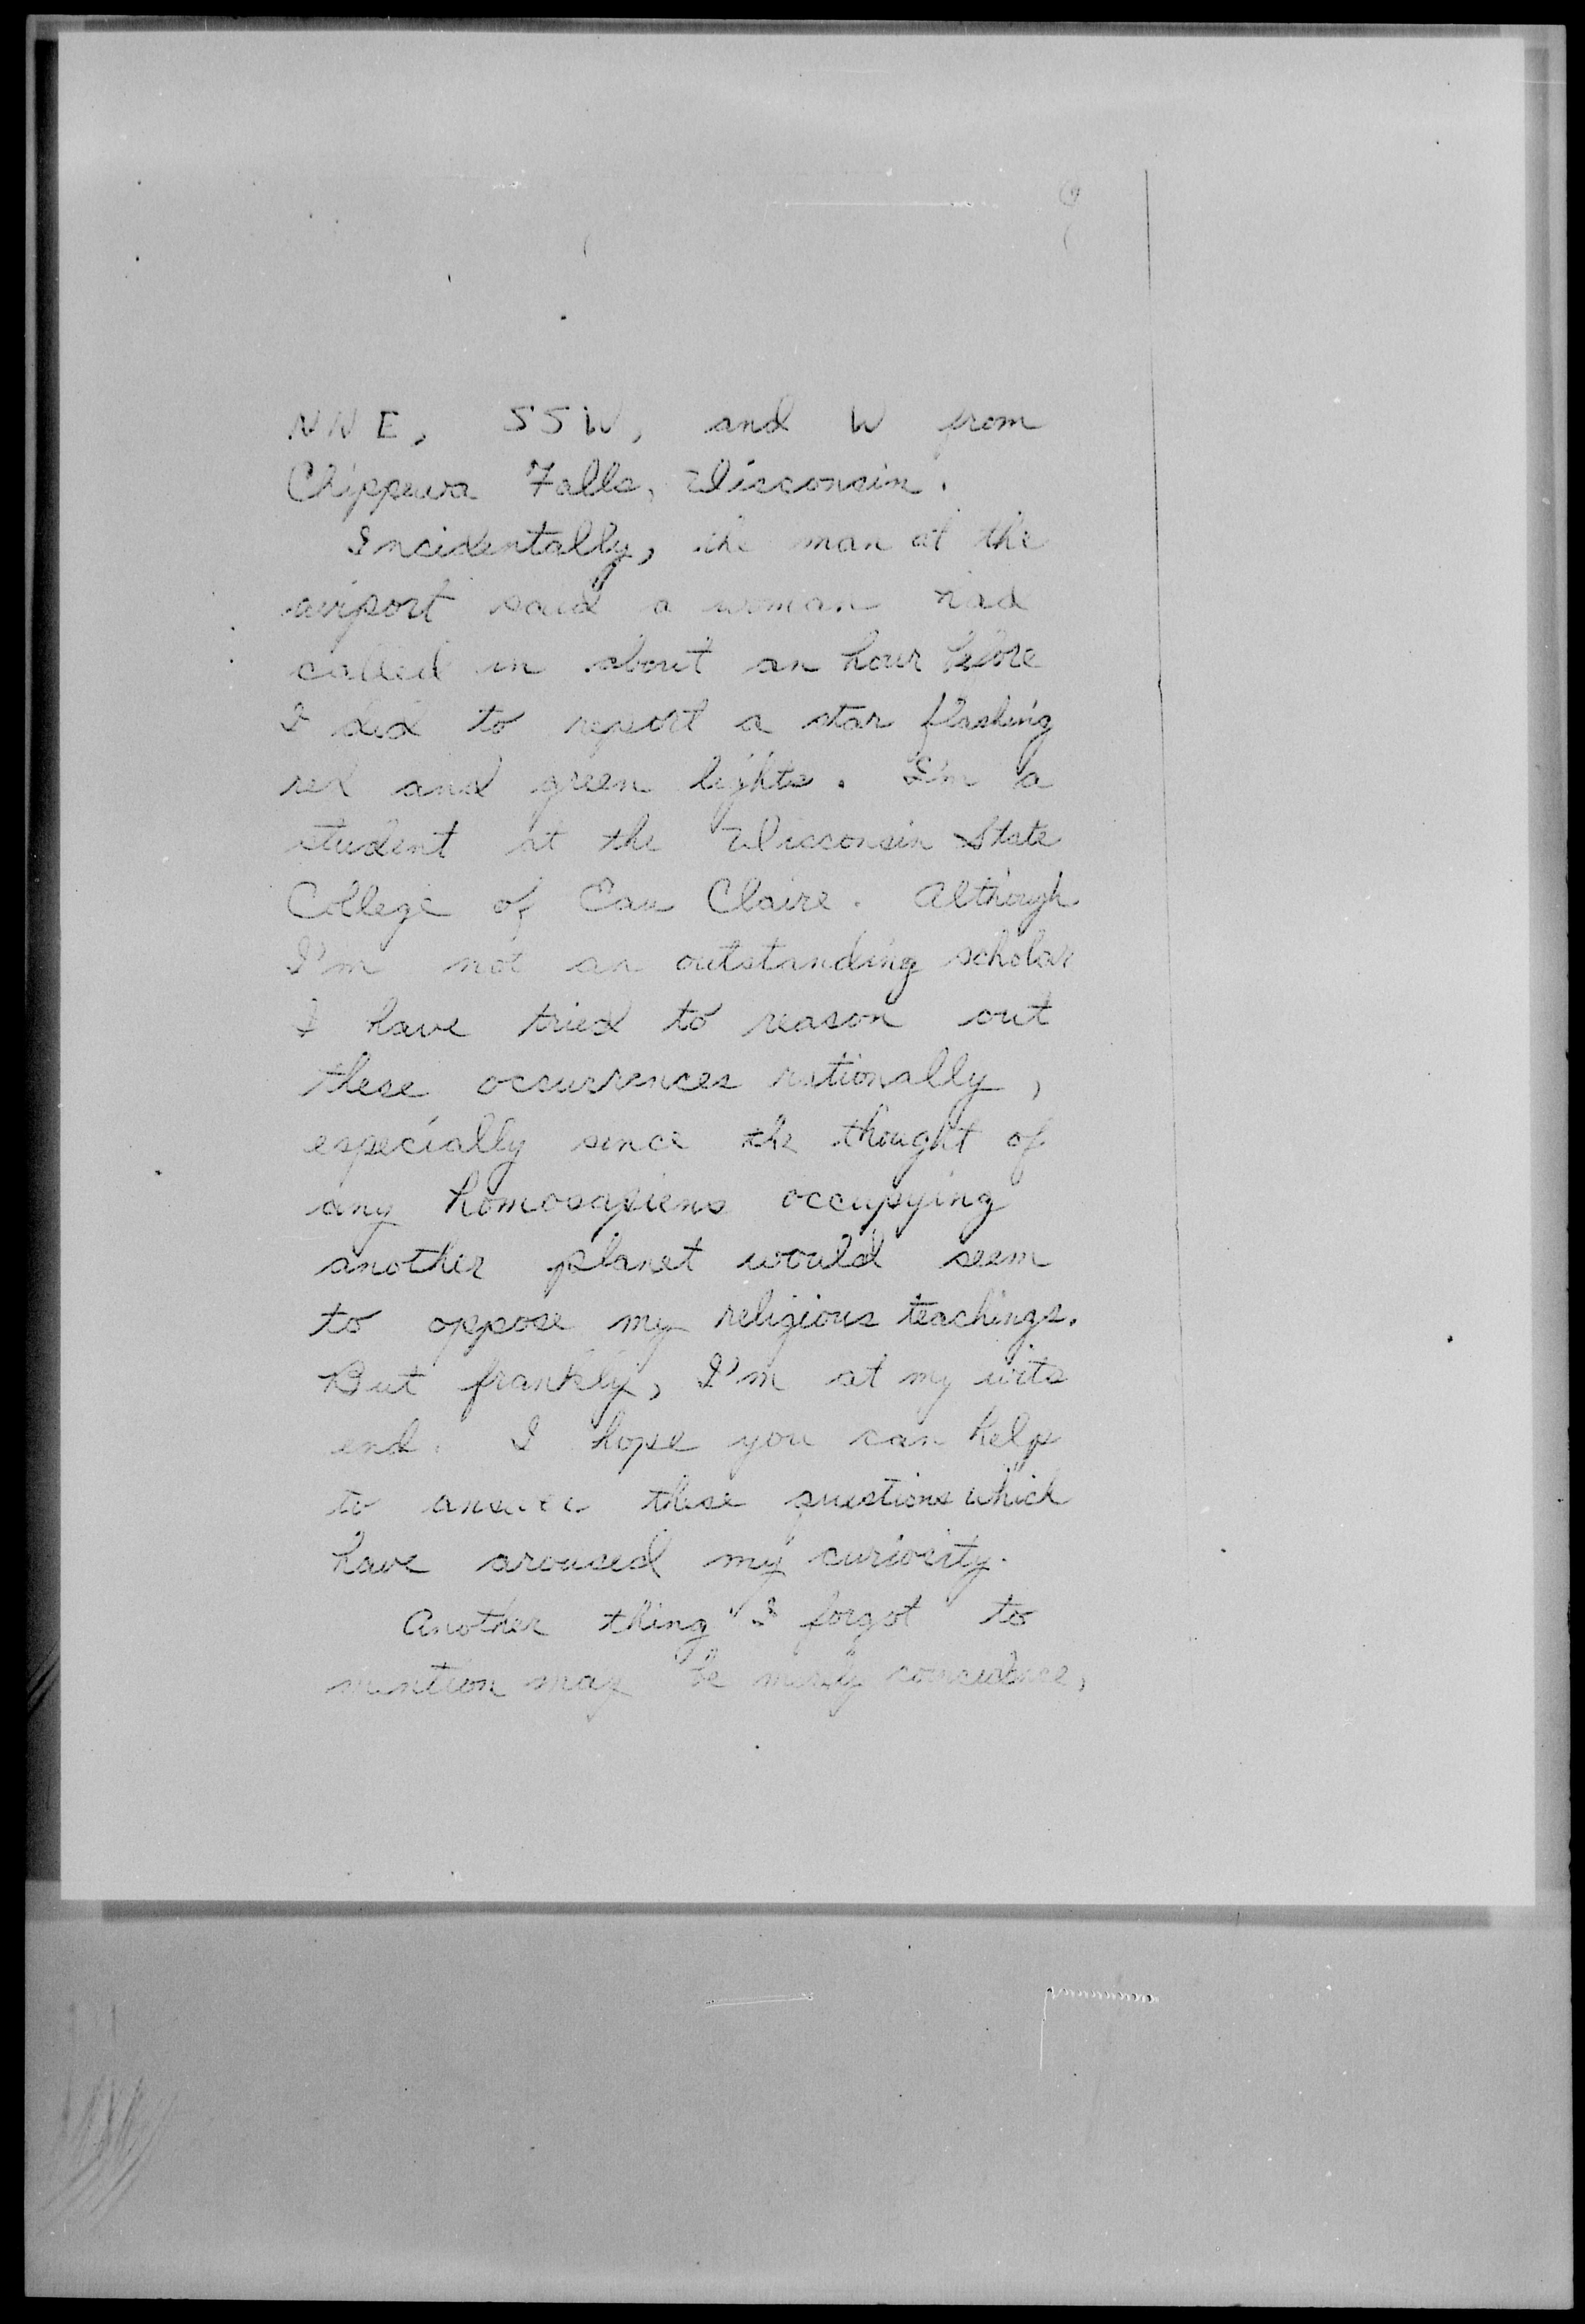 NNE, SSW, and W from
Chippewa Falls, Wisconsin.
Incidentally, the man at the
airport said a woman had
called in about an hour before
I did to report a star flashing
red and green lights. I'm a
student at the Wisconsin State
College of Eau Claire. Although
I'm not an outstanding scholar
I have tried to reason out
these occurrences rationally,
especially since the thought of
any homosapiens occupying
another planet would seem
to oppose my religious teachings.
But frankly, I'm at my wits
end. I hope you can help
to answer these questions which
have aroused my curiosity.
Another thing I forgot to
mention may be merely coincidence,